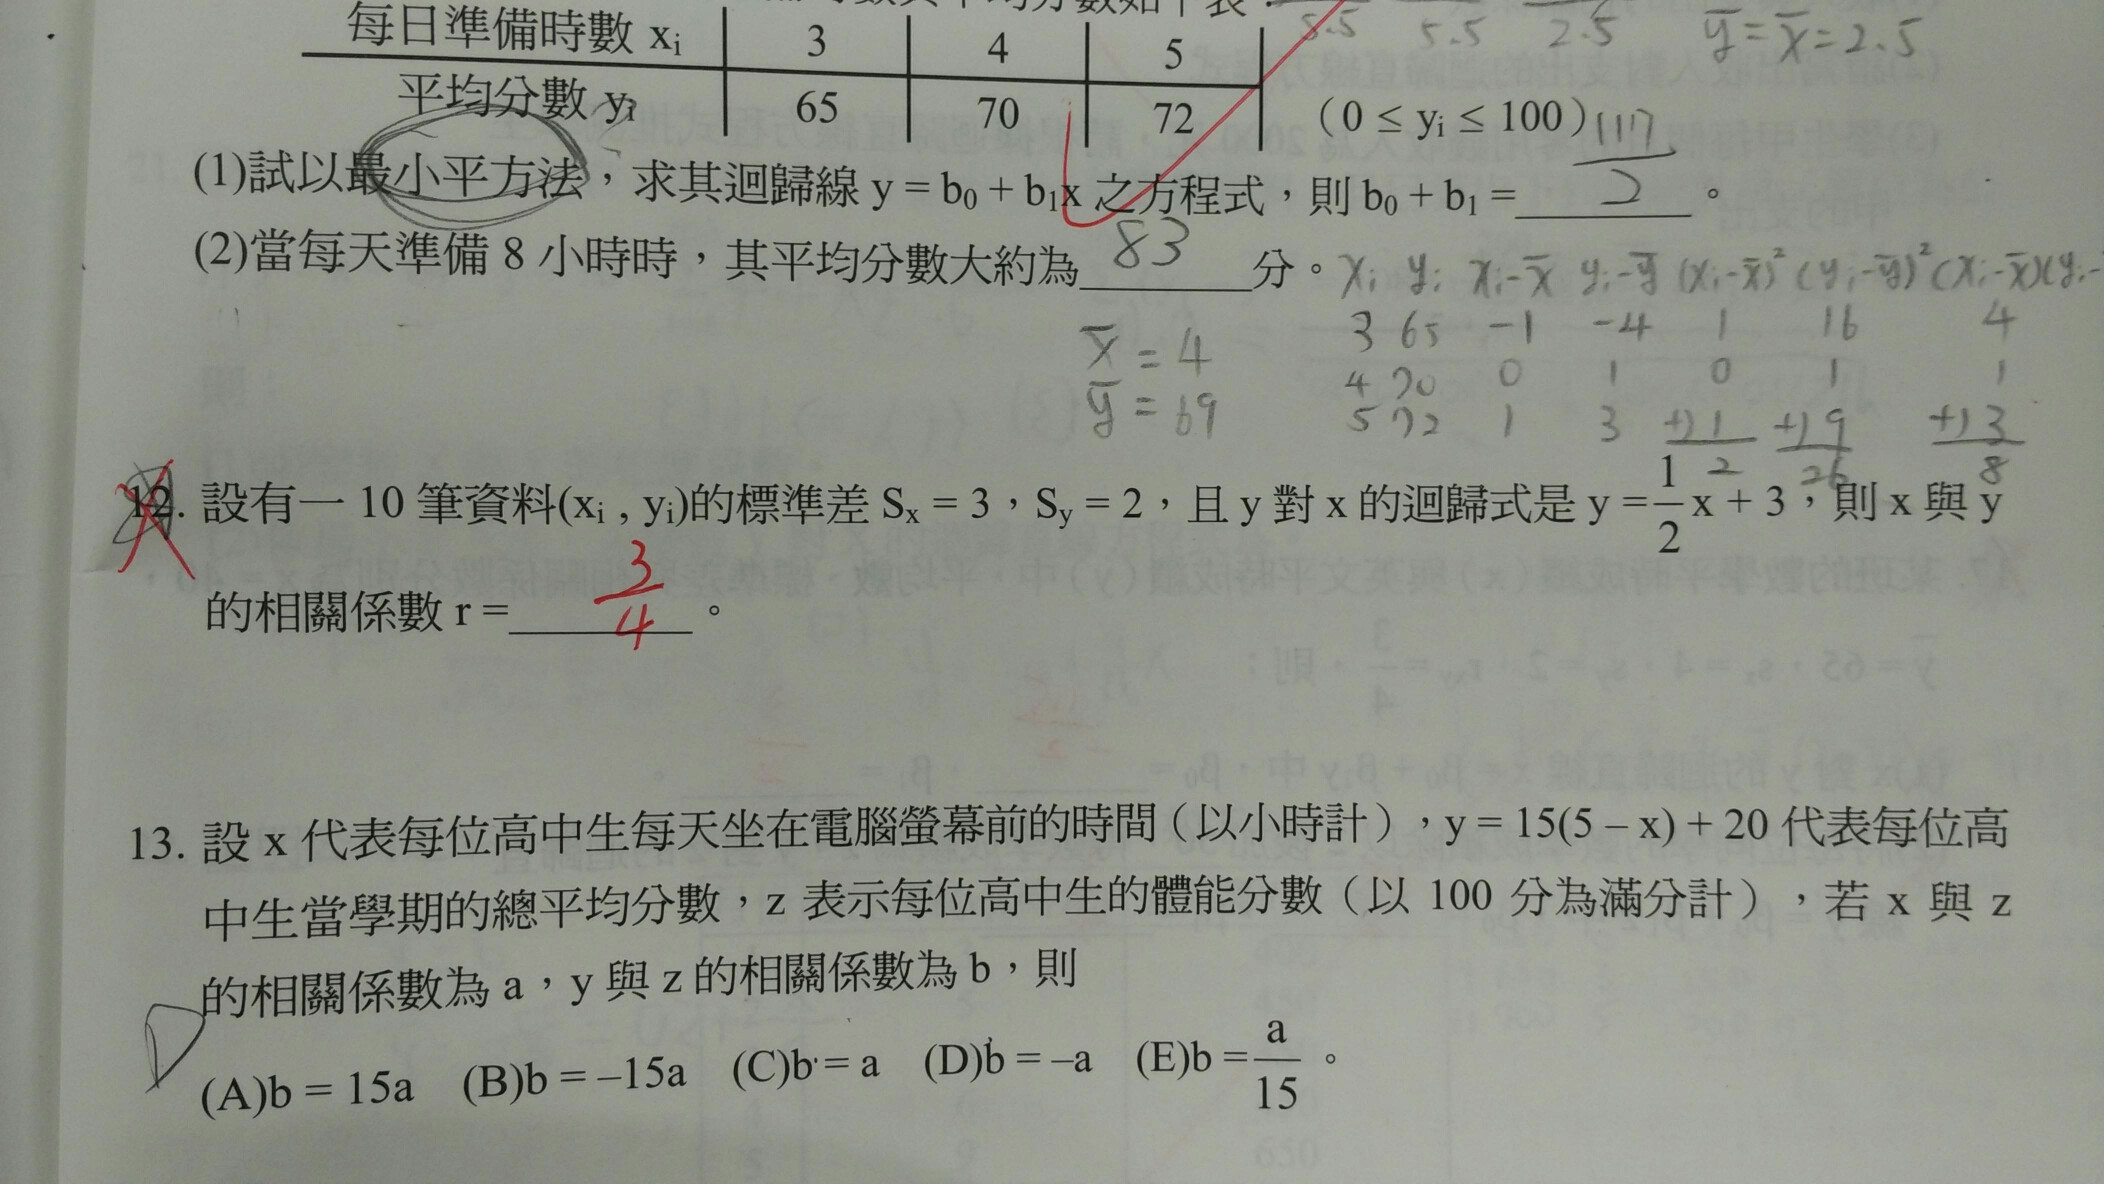 每日準備時數 xi 3 4 5
平均分數 yi 65 70 72 (0 ≤ yi ≤ 100)
5.5 5.5 2.5 ȳ = x̄ = 2.5
(1)試以最小平方法，求其迴歸線 y = b0 + b1x 之方程式，則 b0 + b1 = 。
(2)當每天準備 8 小時時，其平均分數大約為 83 分。
xi yi xi-x̄ yi-ȳ (xi-x̄)² (yi-ȳ)² (xi-x̄)(yi-
3 65 -1 -4 1 16 4
x̄ = 4
4 70 0 1 0 1 1
ȳ = 69
5 72 1 3 +)1 +)9 +)3
2 26 8
12. 設有一 10 筆資料(xi , yi)的標準差 Sx = 3，Sy = 2，且 y 對 x 的迴歸式是 y = 1/2 x + 3，則 x 與 y
的相關係數 r = 3/4 。
13. 設 x 代表每位高中生每天坐在電腦螢幕前的時間（以小時計），y = 15(5 – x) + 20 代表每位高
中生當學期的總平均分數，z 表示每位高中生的體能分數（以 100 分為滿分計），若 x 與 z
的相關係數為 a，y 與 z 的相關係數為 b，則
D
(A)b = 15a (B)b = –15a (C)b = a (D)b = –a (E)b = a/15 。